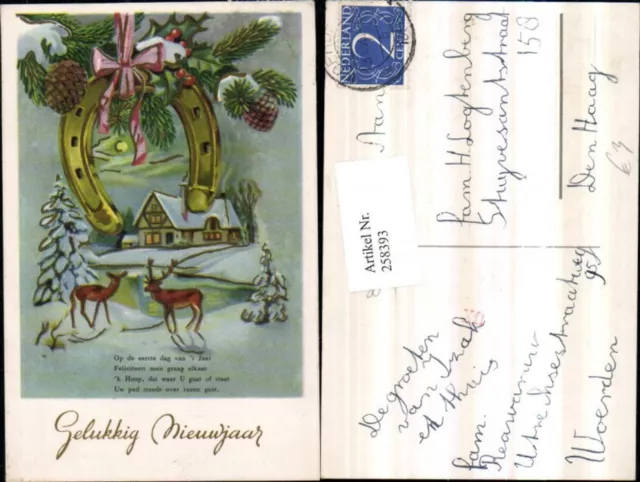 Op de eerste dag van 't Jaar
Feliciteert men graag elkaar
'k Hoop, dat waar U gaat of staat
Uw pad steeds over rozen gaat.
Gelukkig Nieuwjaar
NEDERLAND
2
CENT
Aan
fam. H. Logtenberg
Stuyvesantstraat
158
Den Haag
€3
Artikel Nr.
258393
De groeten
van
en
fam.
Utrechtsestraatweg
95
Woerden